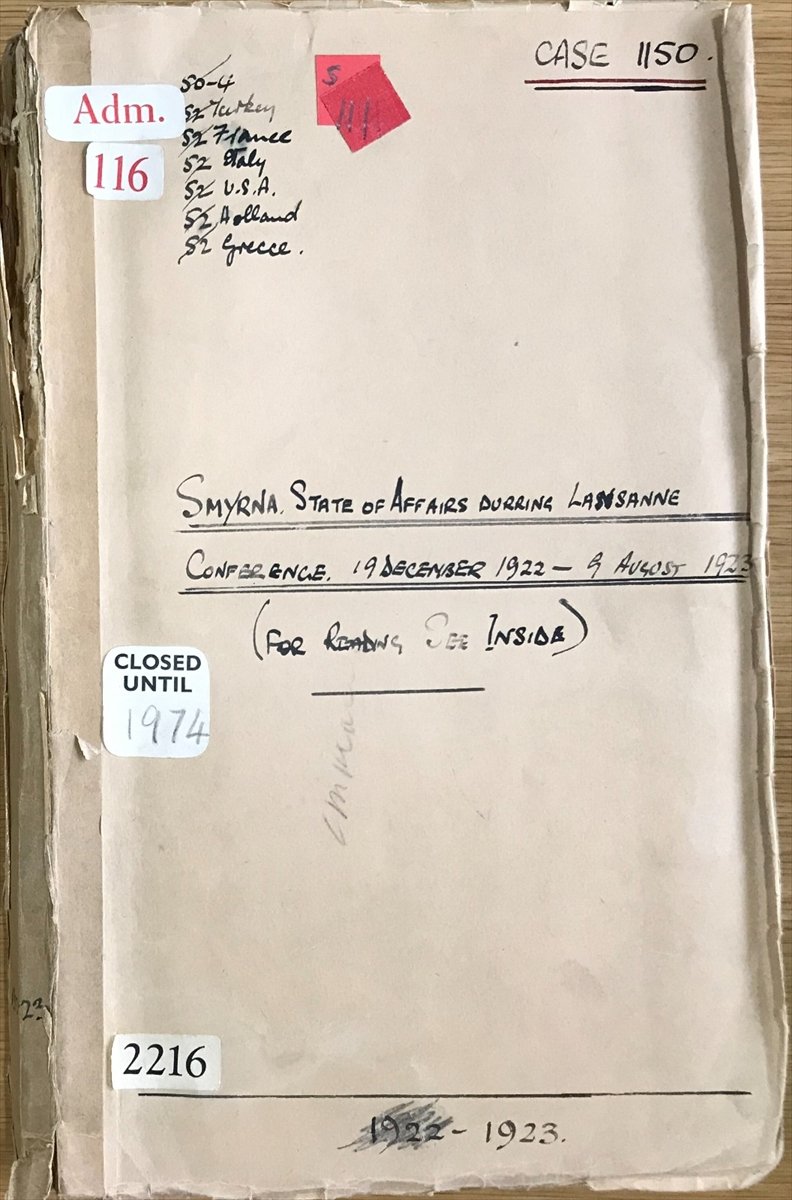 CASE 1150.
Adm.
116
50-4
52 Turkey
52 France
52 Italy
52 U.S.A.
52 Holland
52 Greece.
S
SMYRNA. STATE OF AFFAIRS DURRING LAUSANNE
CONFERENCE. 19 DECEMBER 1922 – 9 AUGUST 1923
(FOR READING SEE INSIDE)
CLOSED
UNTIL
1974
2216
1922 - 1923.